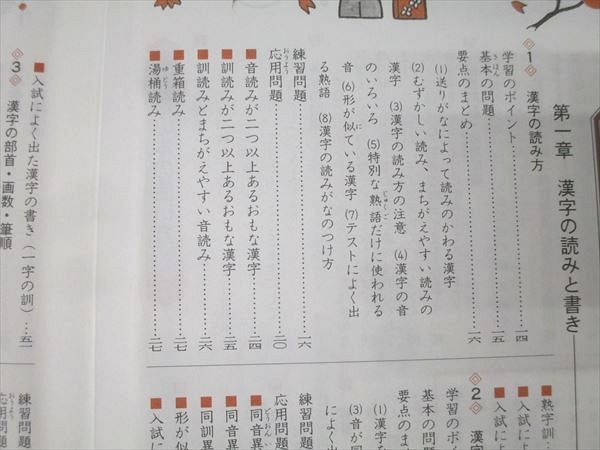 第一章 漢字の読みと書き
1 漢字の読み方
学習のポイント……一四
基本の問題……一五
要点のまとめ……一六
(1)送りがなによって読みのかわる漢字
(2)むずかしい読み、まちがえやすい読みの
漢字 (3)漢字の読み方の注意 (4)漢字の音
のいろいろ (5)特別な熟語だけに使われる
音 (6)形が似ている漢字 (7)テストによく出
る熟語 (8)漢字の読みがなのつけ方
練習問題……一六
応用問題……二〇
■音読みが二つ以上あるおもな漢字……二四
■訓読みが二つ以上あるおもな漢字……二五
■訓読みとまちがえやすい音読み……二六
■重箱読み……二七
■湯桶読み……二七
■熟字訓
■入試によ
■入試によ
2 漢字
学習のポイ
基本の問題
要点のま
(1)漢字を
(3)音が同
によく出
練習問題
応用問題
■同音異
■同音異
■同訓異
■形が似
■入試に
■入試によく出た漢字の書き(一字の訓)…五一
3 漢字の部首・画数・筆順
練習問題
応用問題